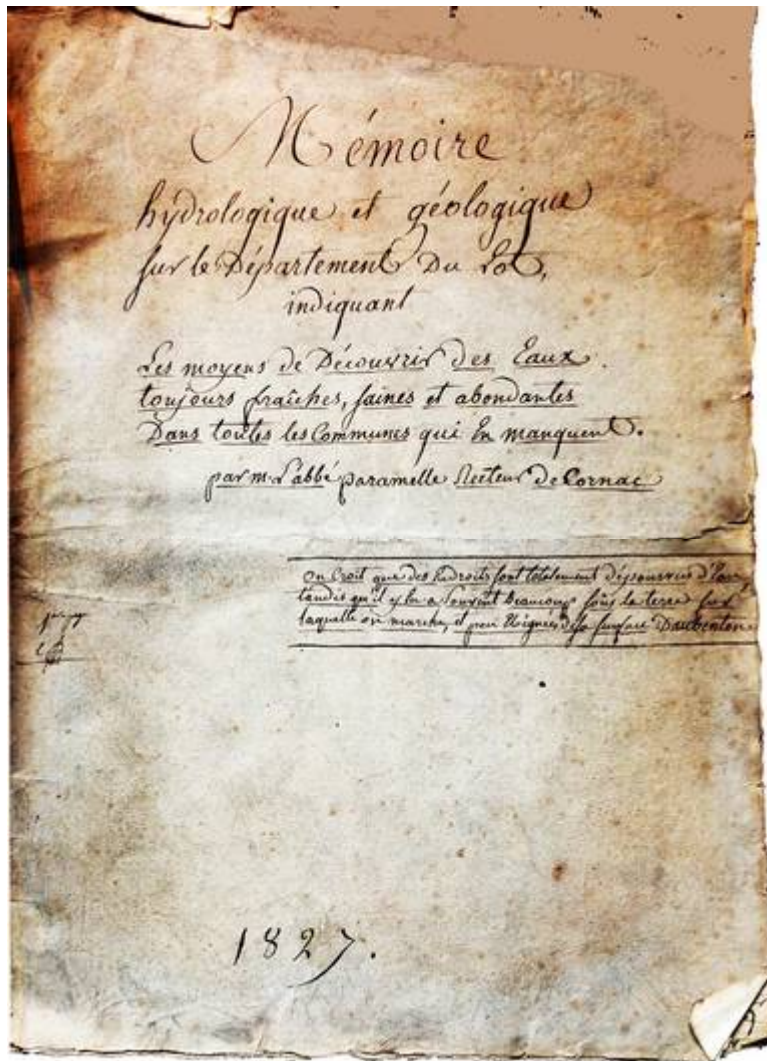 Mémoire
hydrologique et géologique
sur le Département Du Lot,
indiquant
Les moyens de Découvrir des Eaux
toujours fraîches, saines et abondantes
Dans toutes les Communes qui En manquent.
par mr. L'abbé paramelle Recteur De Cornac
On Croit que des Endroits sont totalement dépourvus d'Eau,
tandis qu'il y En a souvent Beaucoup sous la terre sur
laquelle on marche, et peu Eloignée de sa surface Daubenton
1827.